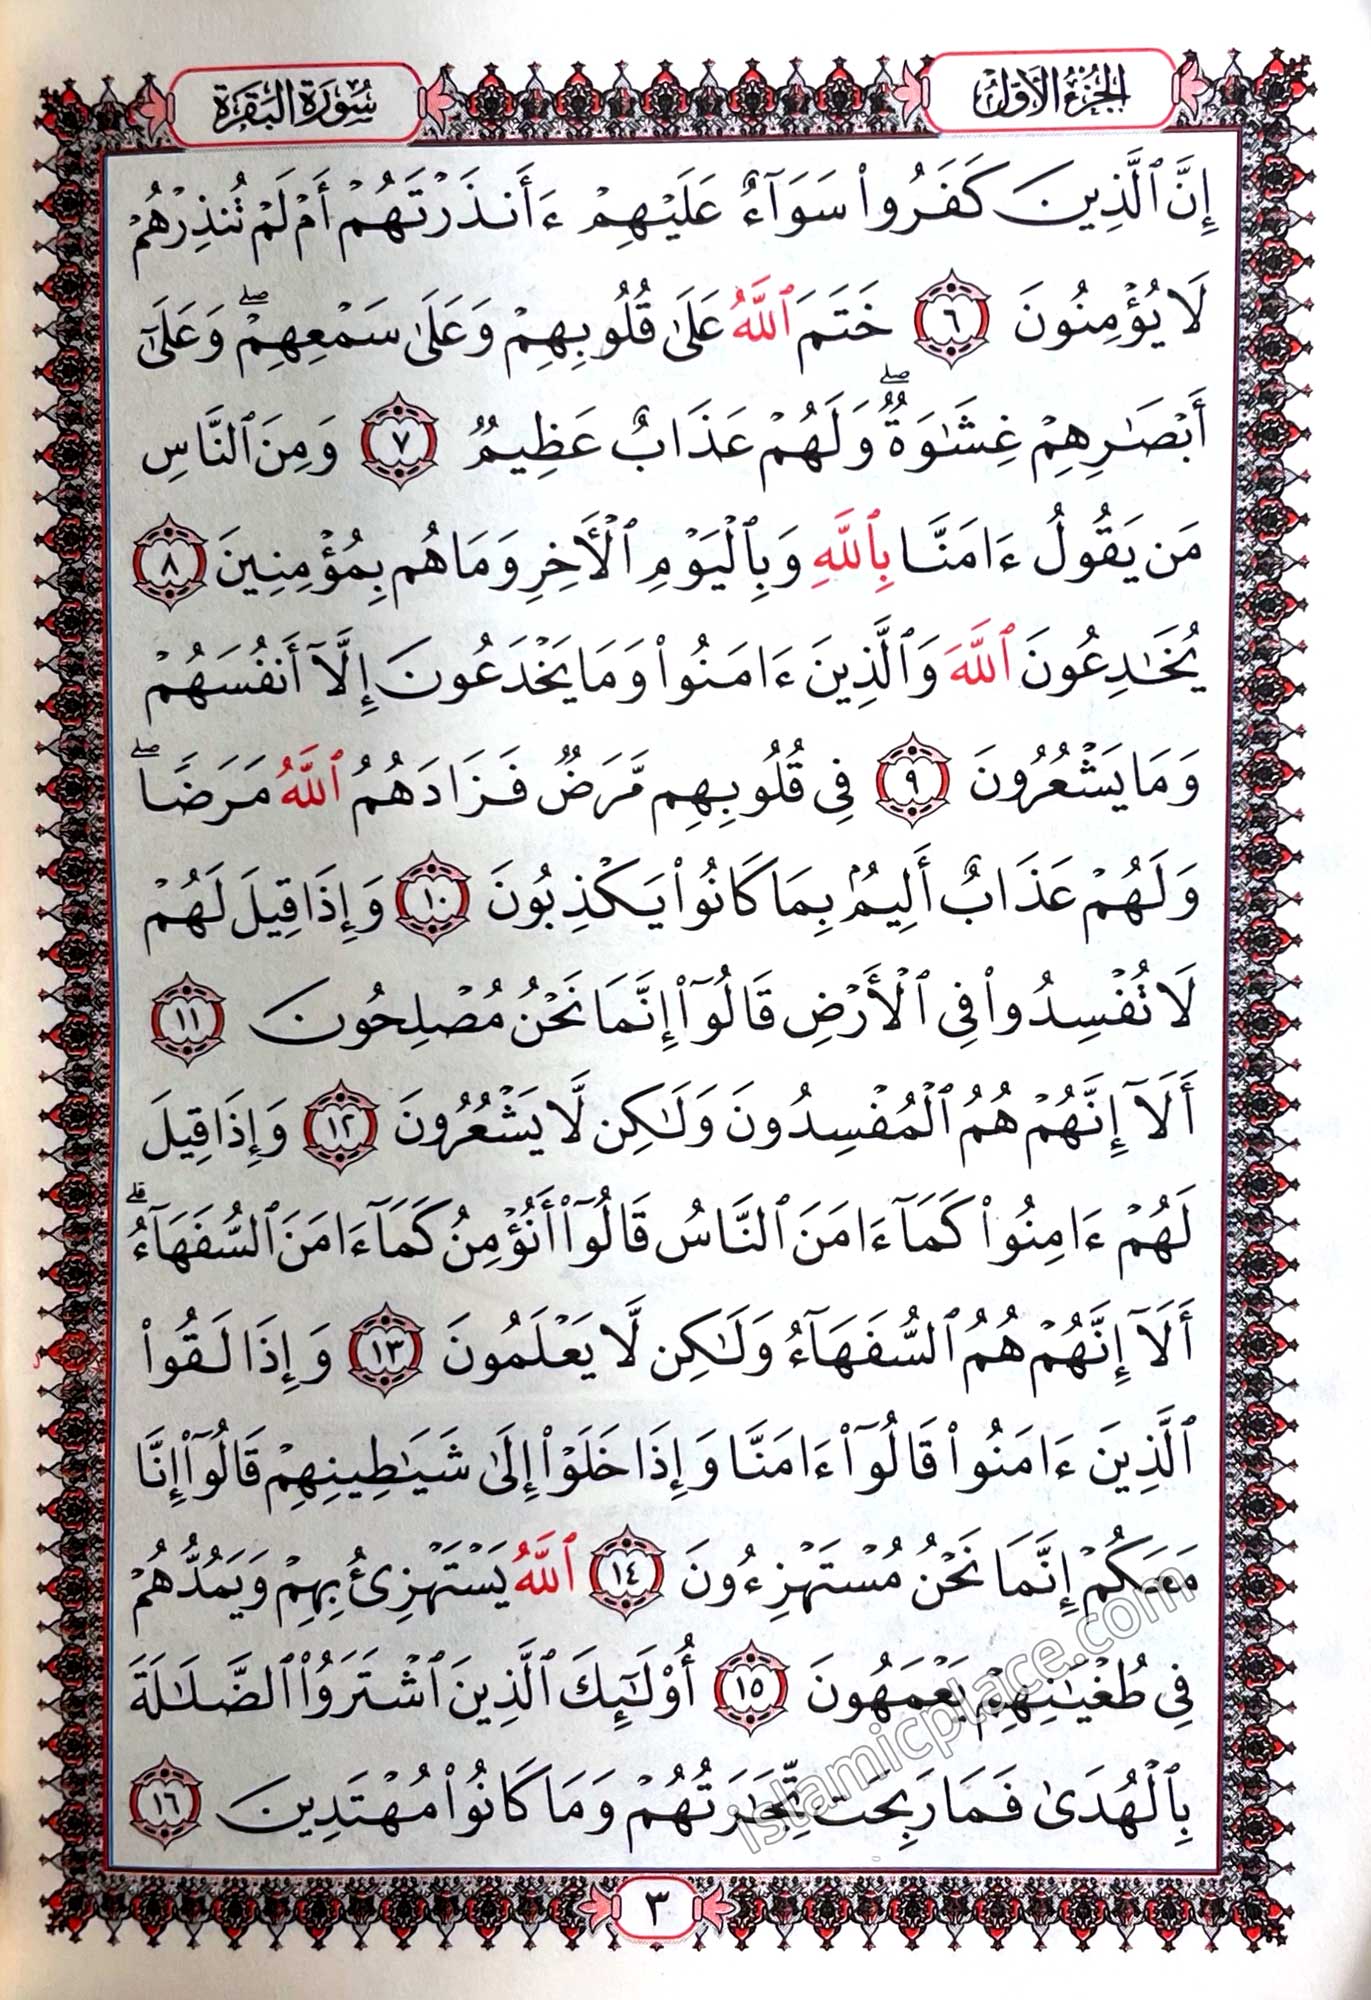 الجزء الأول
سورة البقرة
إِنَّ ٱلَّذِينَ كَفَرُوا۟ سَوَآءٌ عَلَيْهِمْ ءَأَنذَرْتَهُمْ أَمْ لَمْ تُنذِرْهُمْ
لَا يُؤْمِنُونَ ٦ خَتَمَ ٱللَّهُ عَلَىٰ قُلُوبِهِمْ وَعَلَىٰ سَمْعِهِمْ ۖ وَعَلَىٰٓ
أَبْصَٰرِهِمْ غِشَٰوَةٌ ۖ وَلَهُمْ عَذَابٌ عَظِيمٌ ٧ وَمِنَ ٱلنَّاسِ
مَن يَقُولُ ءَامَنَّا بِٱللَّهِ وَبِٱلْيَوْمِ ٱلْأَخِرِ وَمَا هُم بِمُؤْمِنِينَ ٨
يُخَٰدِعُونَ ٱللَّهَ وَٱلَّذِينَ ءَامَنُوا۟ وَمَا يَخْدَعُونَ إِلَّآ أَنفُسَهُمْ
وَمَا يَشْعُرُونَ ٩ فِى قُلُوبِهِم مَّرَضٌ فَزَادَهُمُ ٱللَّهُ مَرَضًا ۖ
وَلَهُمْ عَذَابٌ أَلِيمٌۢ بِمَا كَانُوا۟ يَكْذِبُونَ ١٠ وَإِذَا قِيلَ لَهُمْ
لَا تُفْسِدُوا۟ فِى ٱلْأَرْضِ قَالُوٓا۟ إِنَّمَا نَحْنُ مُصْلِحُونَ ١١
أَلَآ إِنَّهُمْ هُمُ ٱلْمُفْسِدُونَ وَلَٰكِن لَّا يَشْعُرُونَ ١٢ وَإِذَا قِيلَ
لَهُمْ ءَامِنُوا۟ كَمَآ ءَامَنَ ٱلنَّاسُ قَالُوٓا۟ أَنُؤْمِنُ كَمَآ ءَامَنَ ٱلسُّفَهَآءُ ۗ
أَلَآ إِنَّهُمْ هُمُ ٱلسُّفَهَآءُ وَلَٰكِن لَّا يَعْلَمُونَ ١٣ وَإِذَا لَقُوا۟
ٱلَّذِينَ ءَامَنُوا۟ قَالُوٓا۟ ءَامَنَّا وَإِذَا خَلَوْا۟ إِلَىٰ شَيَٰطِينِهِمْ قَالُوٓا۟ إِنَّا
مَعَكُمْ إِنَّمَا نَحْنُ مُسْتَهْزِءُونَ ١٤ ٱللَّهُ يَسْتَهْزِئُ بِهِمْ وَيَمُدُّهُمْ
فِى طُغْيَٰنِهِمْ يَعْمَهُونَ ١٥ أُو۟لَٰٓئِكَ ٱلَّذِينَ ٱشْتَرَوُا۟ ٱلضَّلَٰلَةَ
بِٱلْهُدَىٰ فَمَا رَبِحَت تِّجَٰرَتُهُمْ وَمَا كَانُوا۟ مُهْتَدِينَ ١٦
٣
islamicplace.com